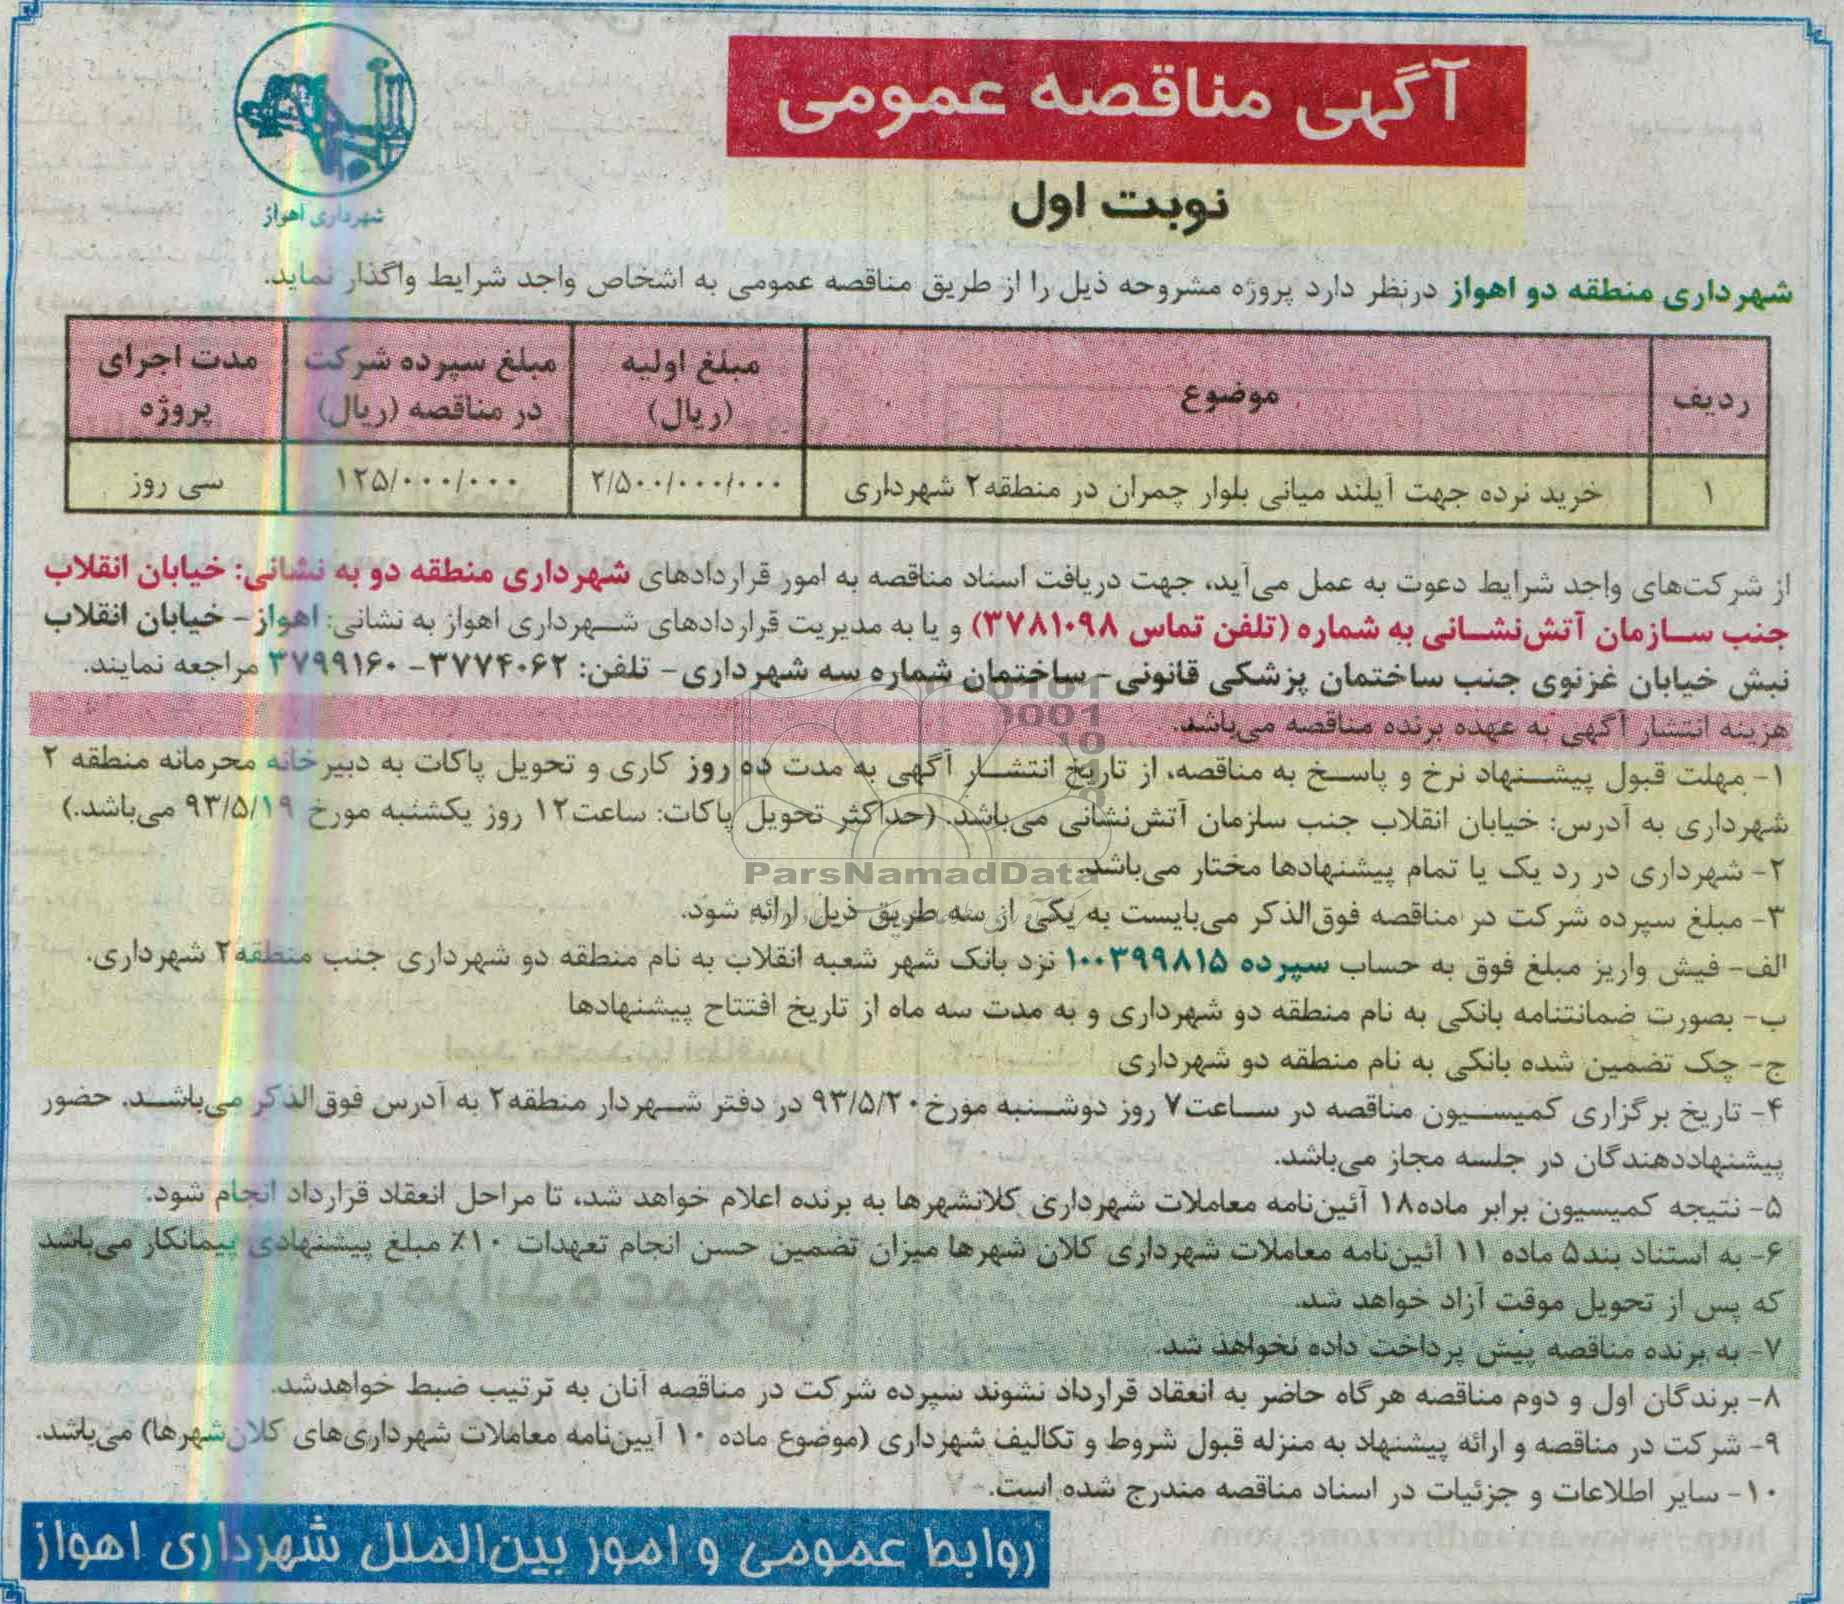 آگهی مناقصه عمومی
شهرداری اهواز
نوبت اول
شهرداری منطقه دو اهواز درنظر دارد پروژه مشروحه ذیل را از طریق مناقصه عمومی به اشخاص واجد شرایط واگذار نماید.
ردیف موضوع مبلغ اولیه (ریال) مبلغ سپرده شرکت در مناقصه (ریال) مدت اجرای پروژه
۱ خرید نرده جهت آیلند میانی بلوار چمران در منطقه۲ شهرداری ۲/۵۰۰/۰۰۰/۰۰۰ ۱۲۵/۰۰۰/۰۰۰ سی روز
از شرکت‌های واجد شرایط دعوت به عمل می‌آید، جهت دریافت اسناد مناقصه به امور قراردادهای شهرداری منطقه دو به نشانی: خیابان انقلاب
جنب سازمان آتش‌نشانی به شماره (تلفن تماس ۳۷۸۱۰۹۸) و یا به مدیریت قراردادهای شهرداری اهواز به نشانی: اهواز- خیابان انقلاب
نبش خیابان غزنوی جنب ساختمان پزشکی قانونی- ساختمان شماره سه شهرداری- تلفن: ۳۷۷۴۰۶۲- ۳۷۹۹۱۶۰ مراجعه نمایند.
هزینه انتشار آگهی به عهده برنده مناقصه می‌باشد.
۱- مهلت قبول پیشنهاد نرخ و پاسخ به مناقصه، از تاریخ انتشار آگهی به مدت ده روز کاری و تحویل پاکات به دبیرخانه محرمانه منطقه ۲
شهرداری به آدرس: خیابان انقلاب جنب سازمان آتش‌نشانی می‌باشد. (حداکثر تحویل پاکات: ساعت۱۲ روز یکشنبه مورخ ۹۳/۵/۱۹ می‌باشد.)
۲- شهرداری در رد یک یا تمام پیشنهادها مختار می‌باشد.
ParsNamadData
۳- مبلغ سپرده شرکت در مناقصه فوق‌الذکر می‌بایست به یکی از سه طریق ذیل ارائه شود.
الف- فیش واریز مبلغ فوق به حساب سپرده ۱۰۰۳۹۹۸۱۵ نزد بانک شهر شعبه انقلاب به نام منطقه دو شهرداری جنب منطقه۲ شهرداری.
ب- بصورت ضمانتنامه بانکی به نام منطقه دو شهرداری و به مدت سه ماه از تاریخ افتتاح پیشنهادها
ج- چک تضمین شده بانکی به نام منطقه دو شهرداری
۴- تاریخ برگزاری کمیسیون مناقصه در ساعت۷ روز دوشنبه مورخ۹۳/۵/۲۰ در دفتر شهردار منطقه۲ به آدرس فوق‌الذکر می‌باشد. حضور
پیشنهاددهندگان در جلسه مجاز می‌باشد.
۵- نتیجه کمیسیون برابر ماده۱۸ آئین‌نامه معاملات شهرداری کلانشهرها به برنده اعلام خواهد شد، تا مراحل انعقاد قرارداد انجام شود.
۶- به استناد بند۵ ماده ۱۱ آئین‌نامه معاملات شهرداری کلان شهرها میزان تضمین حسن انجام تعهدات ۱۰٪ مبلغ پیشنهادی پیمانکار می‌باشد
که پس از تحویل موقت آزاد خواهد شد.
۷- به برنده مناقصه پیش پرداخت داده نخواهد شد.
۸- برندگان اول و دوم مناقصه هرگاه حاضر به انعقاد قرارداد نشوند سپرده شرکت در مناقصه آنان به ترتیب ضبط خواهدشد.
۹- شرکت در مناقصه و ارائه پیشنهاد به منزله قبول شروط و تکالیف شهرداری (موضوع ماده ۱۰ آیین‌نامه معاملات شهرداری‌های کلان‌شهرها) می‌باشد.
۱۰- سایر اطلاعات و جزئیات در اسناد مناقصه مندرج شده است.
روابط عمومی و امور بین‌الملل شهرداری اهواز